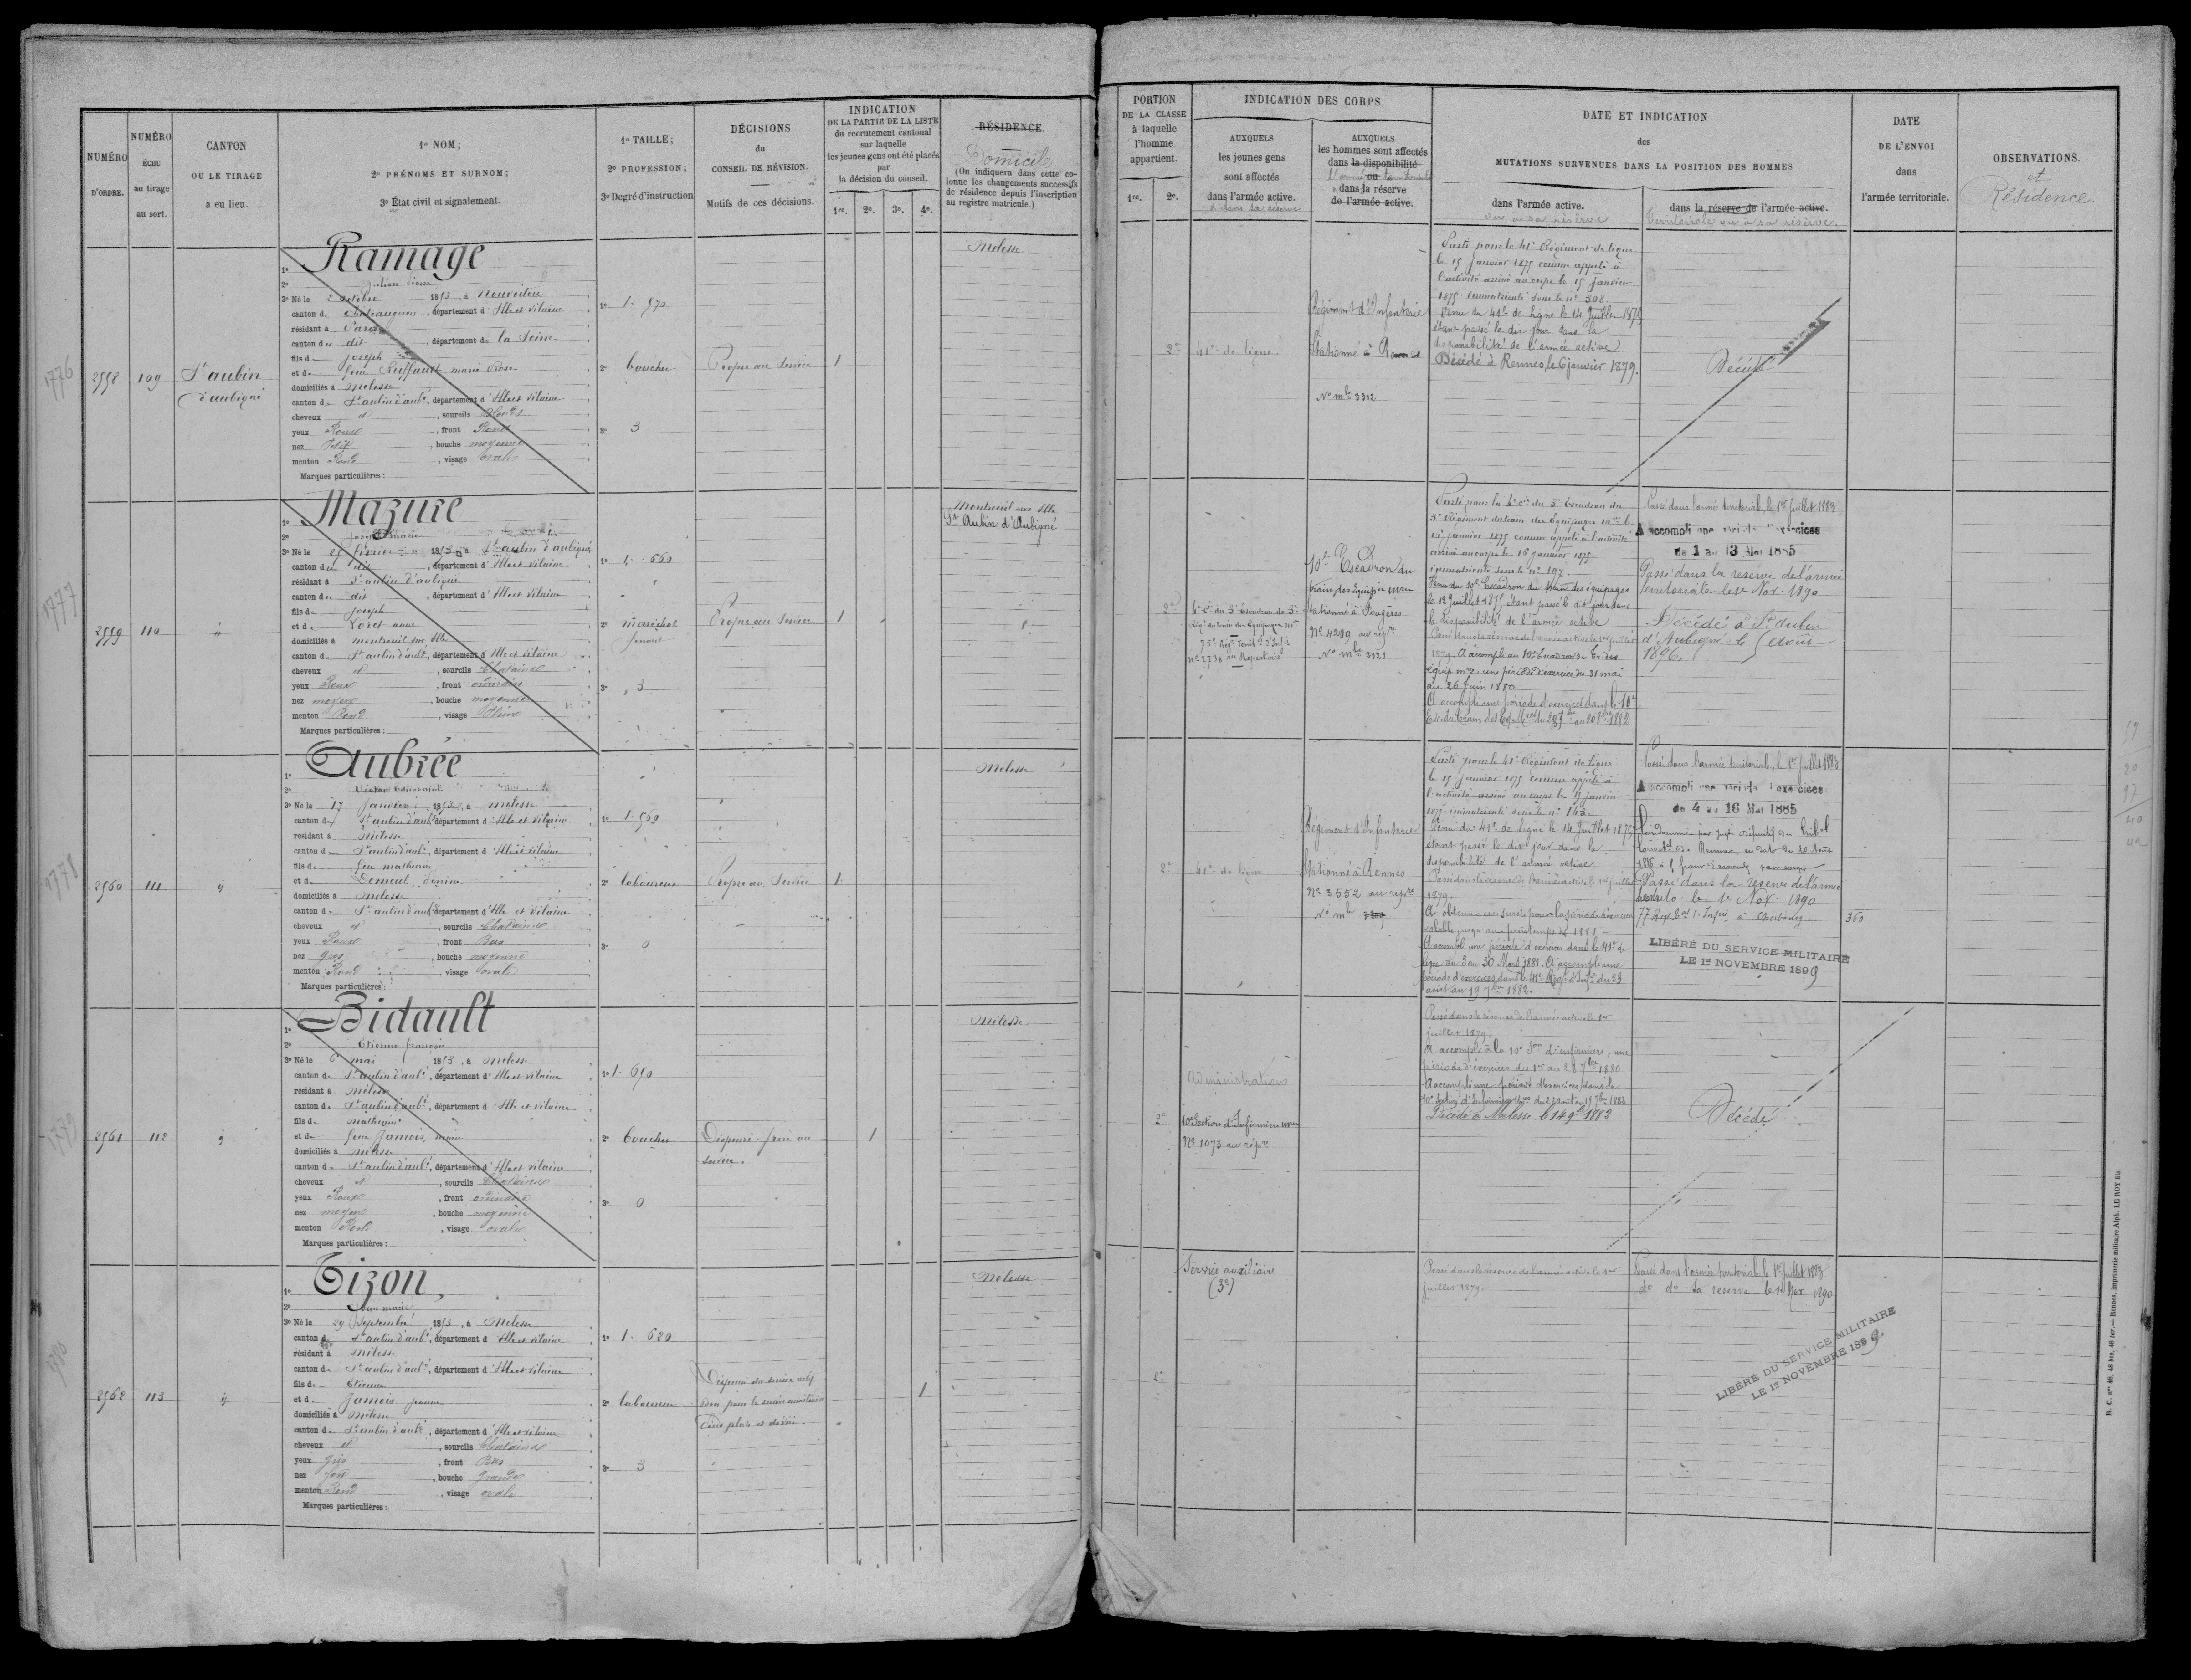 NUMÉRO
D'ORDRE.
NUMÉRO
ÉCHU
au tirage
au sort.
CANTON
OU LE TIRAGE
a eu lieu.
1º NOM;
2º PRÉNOMS ET SURNOM;
3º État civil et signalement.
1º TAILLE;
2º PROFESSION;
3º Degré d'instruction
DÉCISIONS
du
CONSEIL DE RÉVISION.
Motifs de ces décisions.
INDICATION
DE LA PARTIE DE LA LISTE
du recrutement cantonal
sur laquelle
les jeunes gens ont été placés
par
la décision du conseil.
1re. 2e. 3e. 4e.
RÉSIDENCE
Domicile
(On indiquera dans cette co-
lonne les changements successifs
de résidence depuis l'inscription
au registre matricule.)
PORTION
DE LA CLASSE
à laquelle
l'homme
appartient.
1re. 2e.
INDICATION DES CORPS
AUXQUELS
les jeunes gens
sont affectés
dans l'armée active.
& dans la réserve
AUXQUELS
les hommes sont affectés
dans la disponibilité
l'armée ou territoriale
dans la réserve
de l'armée active.
DATE ET INDICATION
des
MUTATIONS SURVENUES DANS LA POSITION DES HOMMES
dans l'armée active.
ou à sa réserve
dans la réserve de l'armée active.
territoriale ou à sa réserve.
DATE
DE L'ENVOI
dans
l'armée territoriale.
OBSERVATIONS.
et
Résidence.
1776
2558 109 St aubin
d'aubigné
1º Ramage
2º Julien
3º Né le 2 octobre 1853, à Nouvoitou
canton de Chateaugiron, département d'Ille et Vilaine
résidant à Paris
canton du dit, département de la Seine
fils de Joseph
et de feue Ruffault marie Rose
domiciliés à Melesse
canton de St aubin d'aubé, département d'Ille et Vilaine
cheveux et, sourcils Blonds
yeux Roux, front Rond
nez Petit, bouche moyenne
menton Rond, visage ovale
Marques particulières:
1º 1. 570
2º boucher
3º 3
Propre au Service
1
Melesse
2e
41e de ligne
Régiment d'Infanterie
Stationné à Rennes
No mle 3312
Parti pour le 41e Régiment de ligne
le 15 Janvier 1875 comme appelé à
l'activité arrivé au corps le 15 Janvier
1875 immatriculé sous le nº 308.
Venu du 41e de ligne le 14 Juillet 1875
étant passé le dit jour dans la
disponibilité de l'armée active
Décédé à Rennes, le 6 janvier 1879.
Décédé
1777
2559 110 ij
1º Mazure
2º Joseph marie
3º Né le 25 février 1853, à St aubin d'aubigné
canton du dit, département d'Ille et Vilaine
résidant à St aubin d'aubigné
canton du dit, département d'Ille et Vilaine
fils de Joseph
et de Loret anne
domiciliés à Montreuil sur Ille
canton de St aubin d'aubé, département d'Ille et Vilaine
cheveux et, sourcils Chatains
yeux Roux, front ordinaire
nez moyen, bouche moyenne
menton Rond, visage Plein
Marques particulières:
1º 1. 660
2º maréchal
ferrant
3º 3
Propre au Service
1
Montreuil sur Ille
St Aubin d'Aubigné
2e
No 2738 au Répertoire
10e Escadron du
train des Equip. mres
stationné à Fougères
No 4209 au répre
No mle 3121
Parti pour la 6e Cie du 5e Escadron du
5e Régiment du train des Equipages mres le
15 Janvier 1875 comme appelé à l'activité
arrivé au corps le 16 Janvier 1875
immatriculé sous le nº 197.
Venu du 10e Escadron du train des équipages
le 12 Juillet 1875 étant passé le dit jour dans
la disponibilité de l'armée active
Passé dans la réserve de l'armée active le 1er juillet
1879. A accompli au 10e Escadron du tr. des
équip. mres une période d'exercice du 31 mai
au 26 Juin 1880
A accompli une période d'exercices dans le 10e
Passé dans l'armée territoriale, le 1er juillet 1883
A accompli une période d'exercices
du 1 au 13 Mai 1885
Passé dans la réserve de l'armée
territoriale le 1er Nov. 1890
Décédé à St Aubin
d'Aubigné le 5 août
1896.
1778
2560 111 ij
1º Aubrée
2º Victor Toussaint
3º Né le 17 Janvier 1853, à Melesse
canton de St aubin d'aubé, département d'Ille et Vilaine
résidant à Melesse
canton de St aubin d'aubé, département d'Ille et Vilaine
fils de feu Mathurin
et de Demeul
domiciliés à Melesse
canton de St aubin d'aubé, département d'Ille et Vilaine
cheveux et, sourcils Chatains
yeux Roux, front Bas
nez gros, bouche moyenne
menton Rond, visage ovale
Marques particulières:
1º 1. 560
2º laboureur
3º 0
Propre au Service
1
Melesse
2e
41e de ligne
Régiment d'Infanterie
Stationné à Rennes
No 3552 au répre
No mle
Parti pour le 41e Régiment de ligne
le 15 Janvier 1875 comme appelé à
l'activité arrivé au corps le 15 Janvier
1875 immatriculé sous le nº 163.
Venu du 41e de Ligne le 14 Juillet 1875
étant passé le dit jour dans la
disponibilité de l'armée active
Passé dans la réserve de l'armée active le 1er juillet
1879.
A obtenu un sursis pour la période d'exercices
valable jusqu'au printemps de 1881
A accompli une période d'exercices dans le 41e de
ligne du 3 au 30 Mars 1881. A accompli une
période d'exercices dans le 41e Régt d'Infie du 23
août au 19 7bre 1882.
Passé dans l'armée territoriale, le 1er Juillet 1883
A accompli une période d'exercices
du 4 au 16 Mai 1885
Passé dans la réserve de l'armée
territle le 1er Nov. 1890
à Cherbourg.
LIBÉRÉ DU SERVICE MILITAIRE
LE 1er NOVEMBRE 1899
360
1779
2561 112 ij
1º Bidault
2º Etienne françois
3º Né le 6 mai 1853, à Melesse
canton de St aubin d'aubé, département d'Ille et Vilaine
résidant à Melesse
canton de St aubin d'aubé, département d'Ille et Vilaine
fils de Mathurin
et de feue Jamois, marie
domiciliés à Melesse
canton de St aubin d'aubé, département d'Ille et Vilaine
cheveux et, sourcils Chatains
yeux Roux, front ordinaire
nez moyen, bouche moyenne
menton Rond, visage ovale
Marques particulières:
1º 1. 690
2º boucher
3º 0
Dispensé. frère au
service.
1
Melesse
2e
Administration
10e Section d'Infirmiers mres
No 1073 au répre
Passé dans la réserve de l'armée active le 1er
juillet 1879.
A accompli à la 10e Son d'infirmiers, une
période d'exercices du 1er au 28 7bre 1880
A accompli une période d'exercices dans la
Décédé à Melesse le 14 9bre 1882
Décédé
1780
2562 113 ij
1º Tizon,
2º Jean marie
3º Né le 29 Septembre 1853, à Melesse
canton de St aubin d'aubé, département d'Ille et Vilaine
résidant à Melesse
canton de St aubin d'aubé, département d'Ille et Vilaine
fils de Etienne
et de Jamois Jeanne
domiciliés à Melesse
canton de St aubin d'aubé, département d'Ille et Vilaine
cheveux et, sourcils Chatains
yeux gris, front Bas
nez fort, bouche grande
menton Rond, visage ovale
Marques particulières:
1º 1. 620
2º laboureur
3º 3
Dispensé du service actif
bon pour le service auxiliaire
Pieds plats
1
Melesse
2e
Service auxiliaire
(3e)
Passé dans la réserve de l'armée active le 1er
juillet 1879.
Passé dans l'armée territoriale, le 1er Juillet 1883
do do la réserve le 1er Nov 1890
LIBÉRÉ DU SERVICE MILITAIRE
LE 1er NOVEMBRE 1899
R. C. nos 48, 48 bis, 48 ter. — Rennes, imprimerie militaire Alph. LE ROY fils